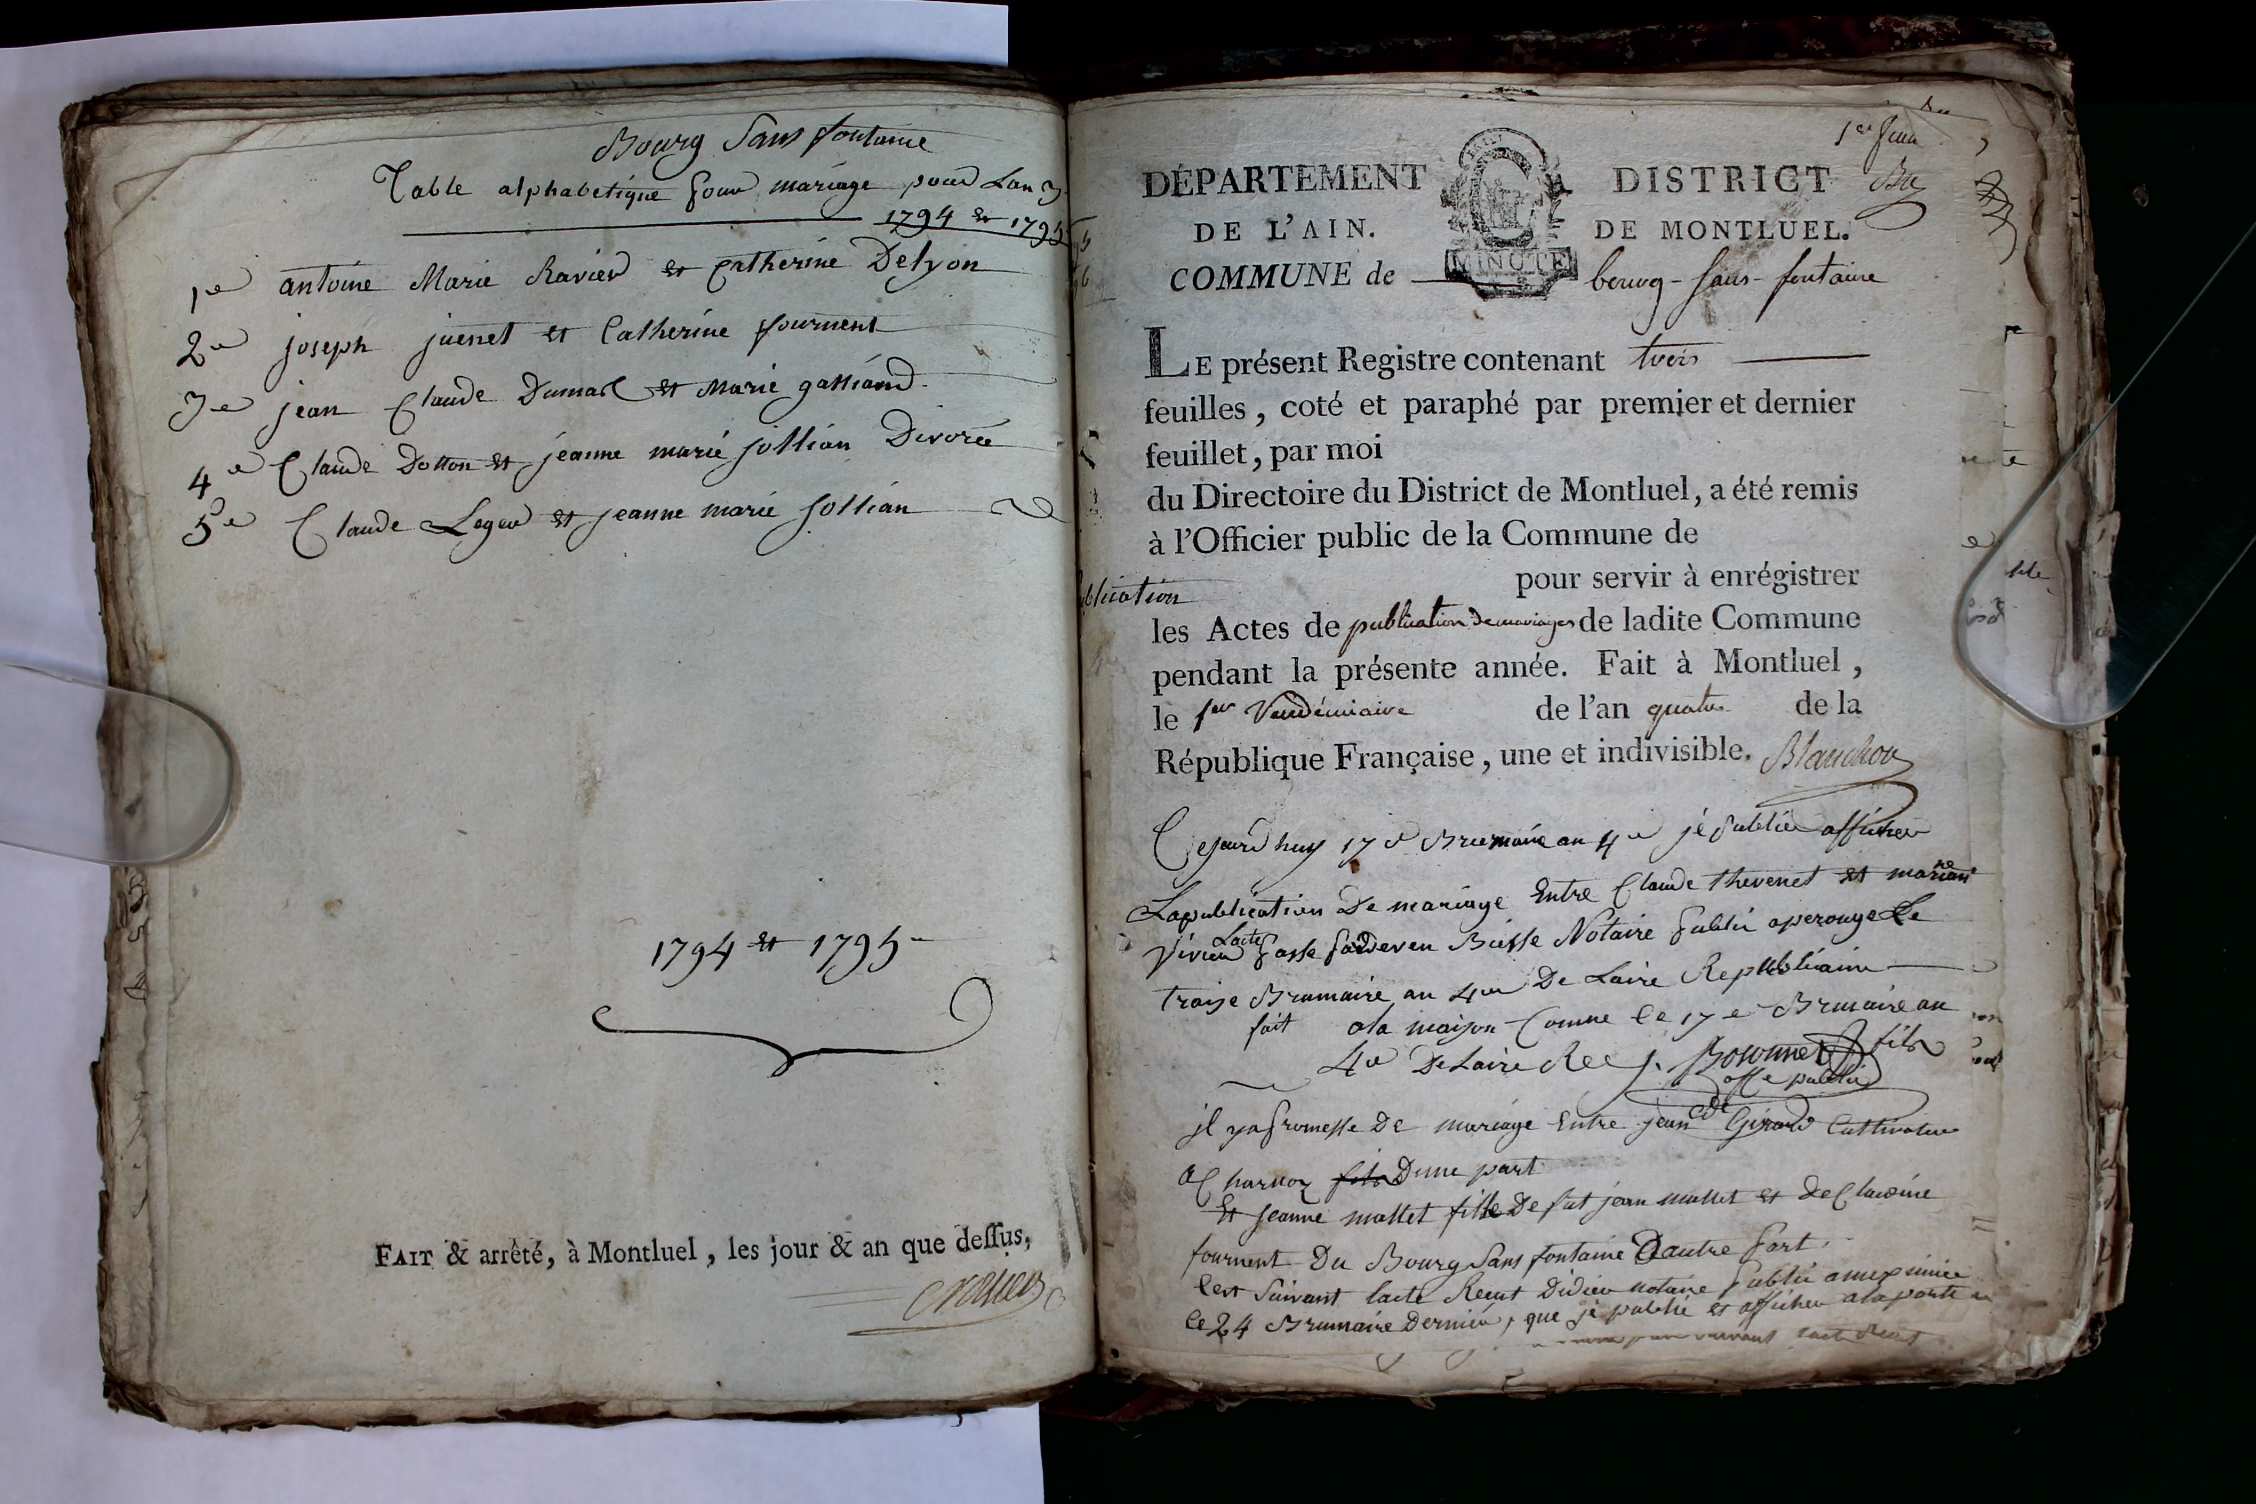 Bourg Sans fontaine
Table alphabetique pour mariage pour Lan 3
1794 et 1795
1e antoine Marie Ravier et Catherine Delyon
2e joseph juenet et Catherine fournent
3e jean Claude Dumas et Marie gassiand
4e Claude Dotton et jeanne marie jollian Divorcé
5e Claude Leger et jeanne marie jollian
1794 et 1795
FAIT & arrêté, à Montluel, les jour & an que dessus,
1er feuil
DÉPARTEMENT DISTRICT
DE L'AIN. DE MONTLUEL.
MINUTE
COMMUNE de bourg-sans-fontaine
LE présent Registre contenant trois
feuilles, coté et paraphé par premier et dernier
feuillet, par moi
du Directoire du District de Montluel, a été remis
à l'Officier public de la Commune de
pour servir à enrégistrer
les Actes de publication de mariages de ladite Commune
pendant la présente année. Fait à Montluel,
le 1er Vendémiaire de l'an quatre de la
République Française, une et indivisible. Blanchon
Cejourd huy 17e Brumaire an 4e jé publier afficher
Lapublication De mariage Entre Claude thevenet et mariane
Vivien Lacte passe pardeven Buisse Notaire publi aperouge Le
traize Brumaire an 4e De Laire Republicaine
fait ala maison Comune le 17e Brumaire an
4e De Laire Re J. Bosonnet fils
offe publi
jl ya promesse De mariage Entre jean Cde Girard Cultivateur
a Charnoz fils Dune part
Et jeanne mallet fille De fut jean mallet et de Claudine
fournent Du Bourg Sans fontaine Dautre part
cest Suivant lacte Recut Didier notaire publi ameximinée
le 24 Brumaire Dernier, que jé publié et afficher ala porte